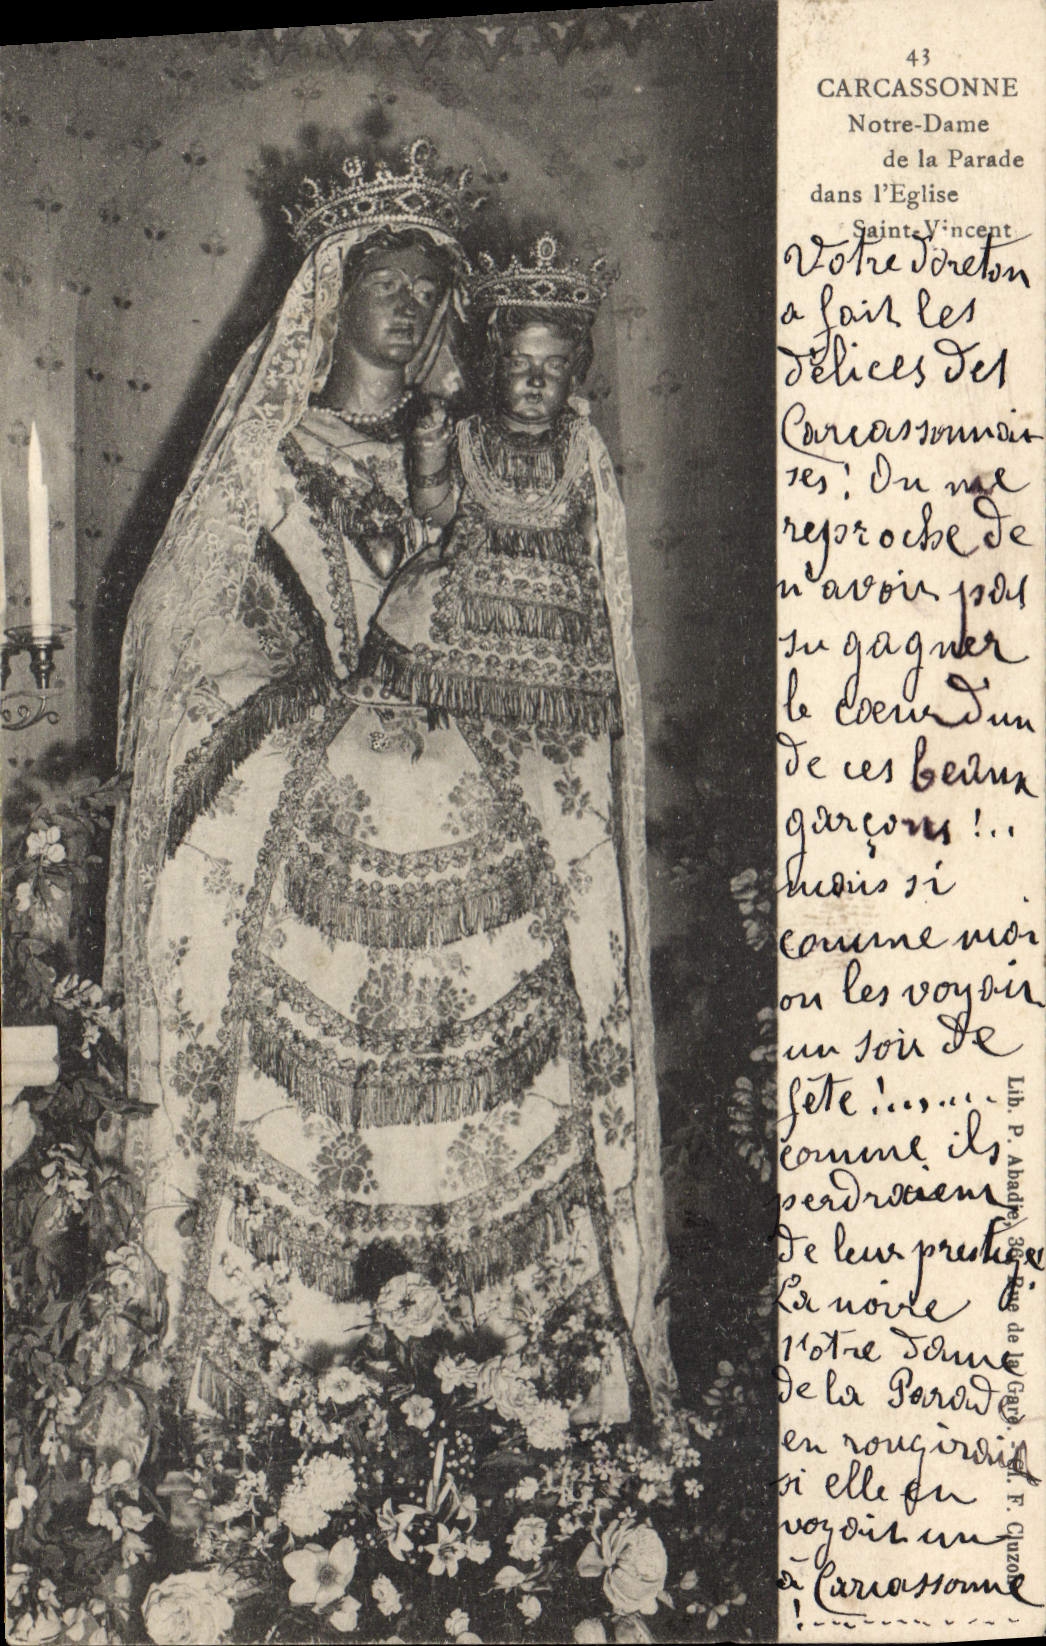 43
CARCASSONNE
Notre-Dame
de la Parade
dans l'Eglise
Saint-Vincent
Votre Breton
a fait les
délices des
Carcassonnai-
ses! On me
reproche de
n'avoir pas
su gagner
le coeur d'un
de ces beaux
garçons!..
mais si
comme moi
on les voyait
un soir de
fête!......
comme ils
perdraient
de leur prestige!
La noire
Notre Dame
de la Parade
en rougirait
si elle en
voyait un
à Carcassonne
!
Lib. P. Abadie, 36, Rue de la Gare. F. Cluzon